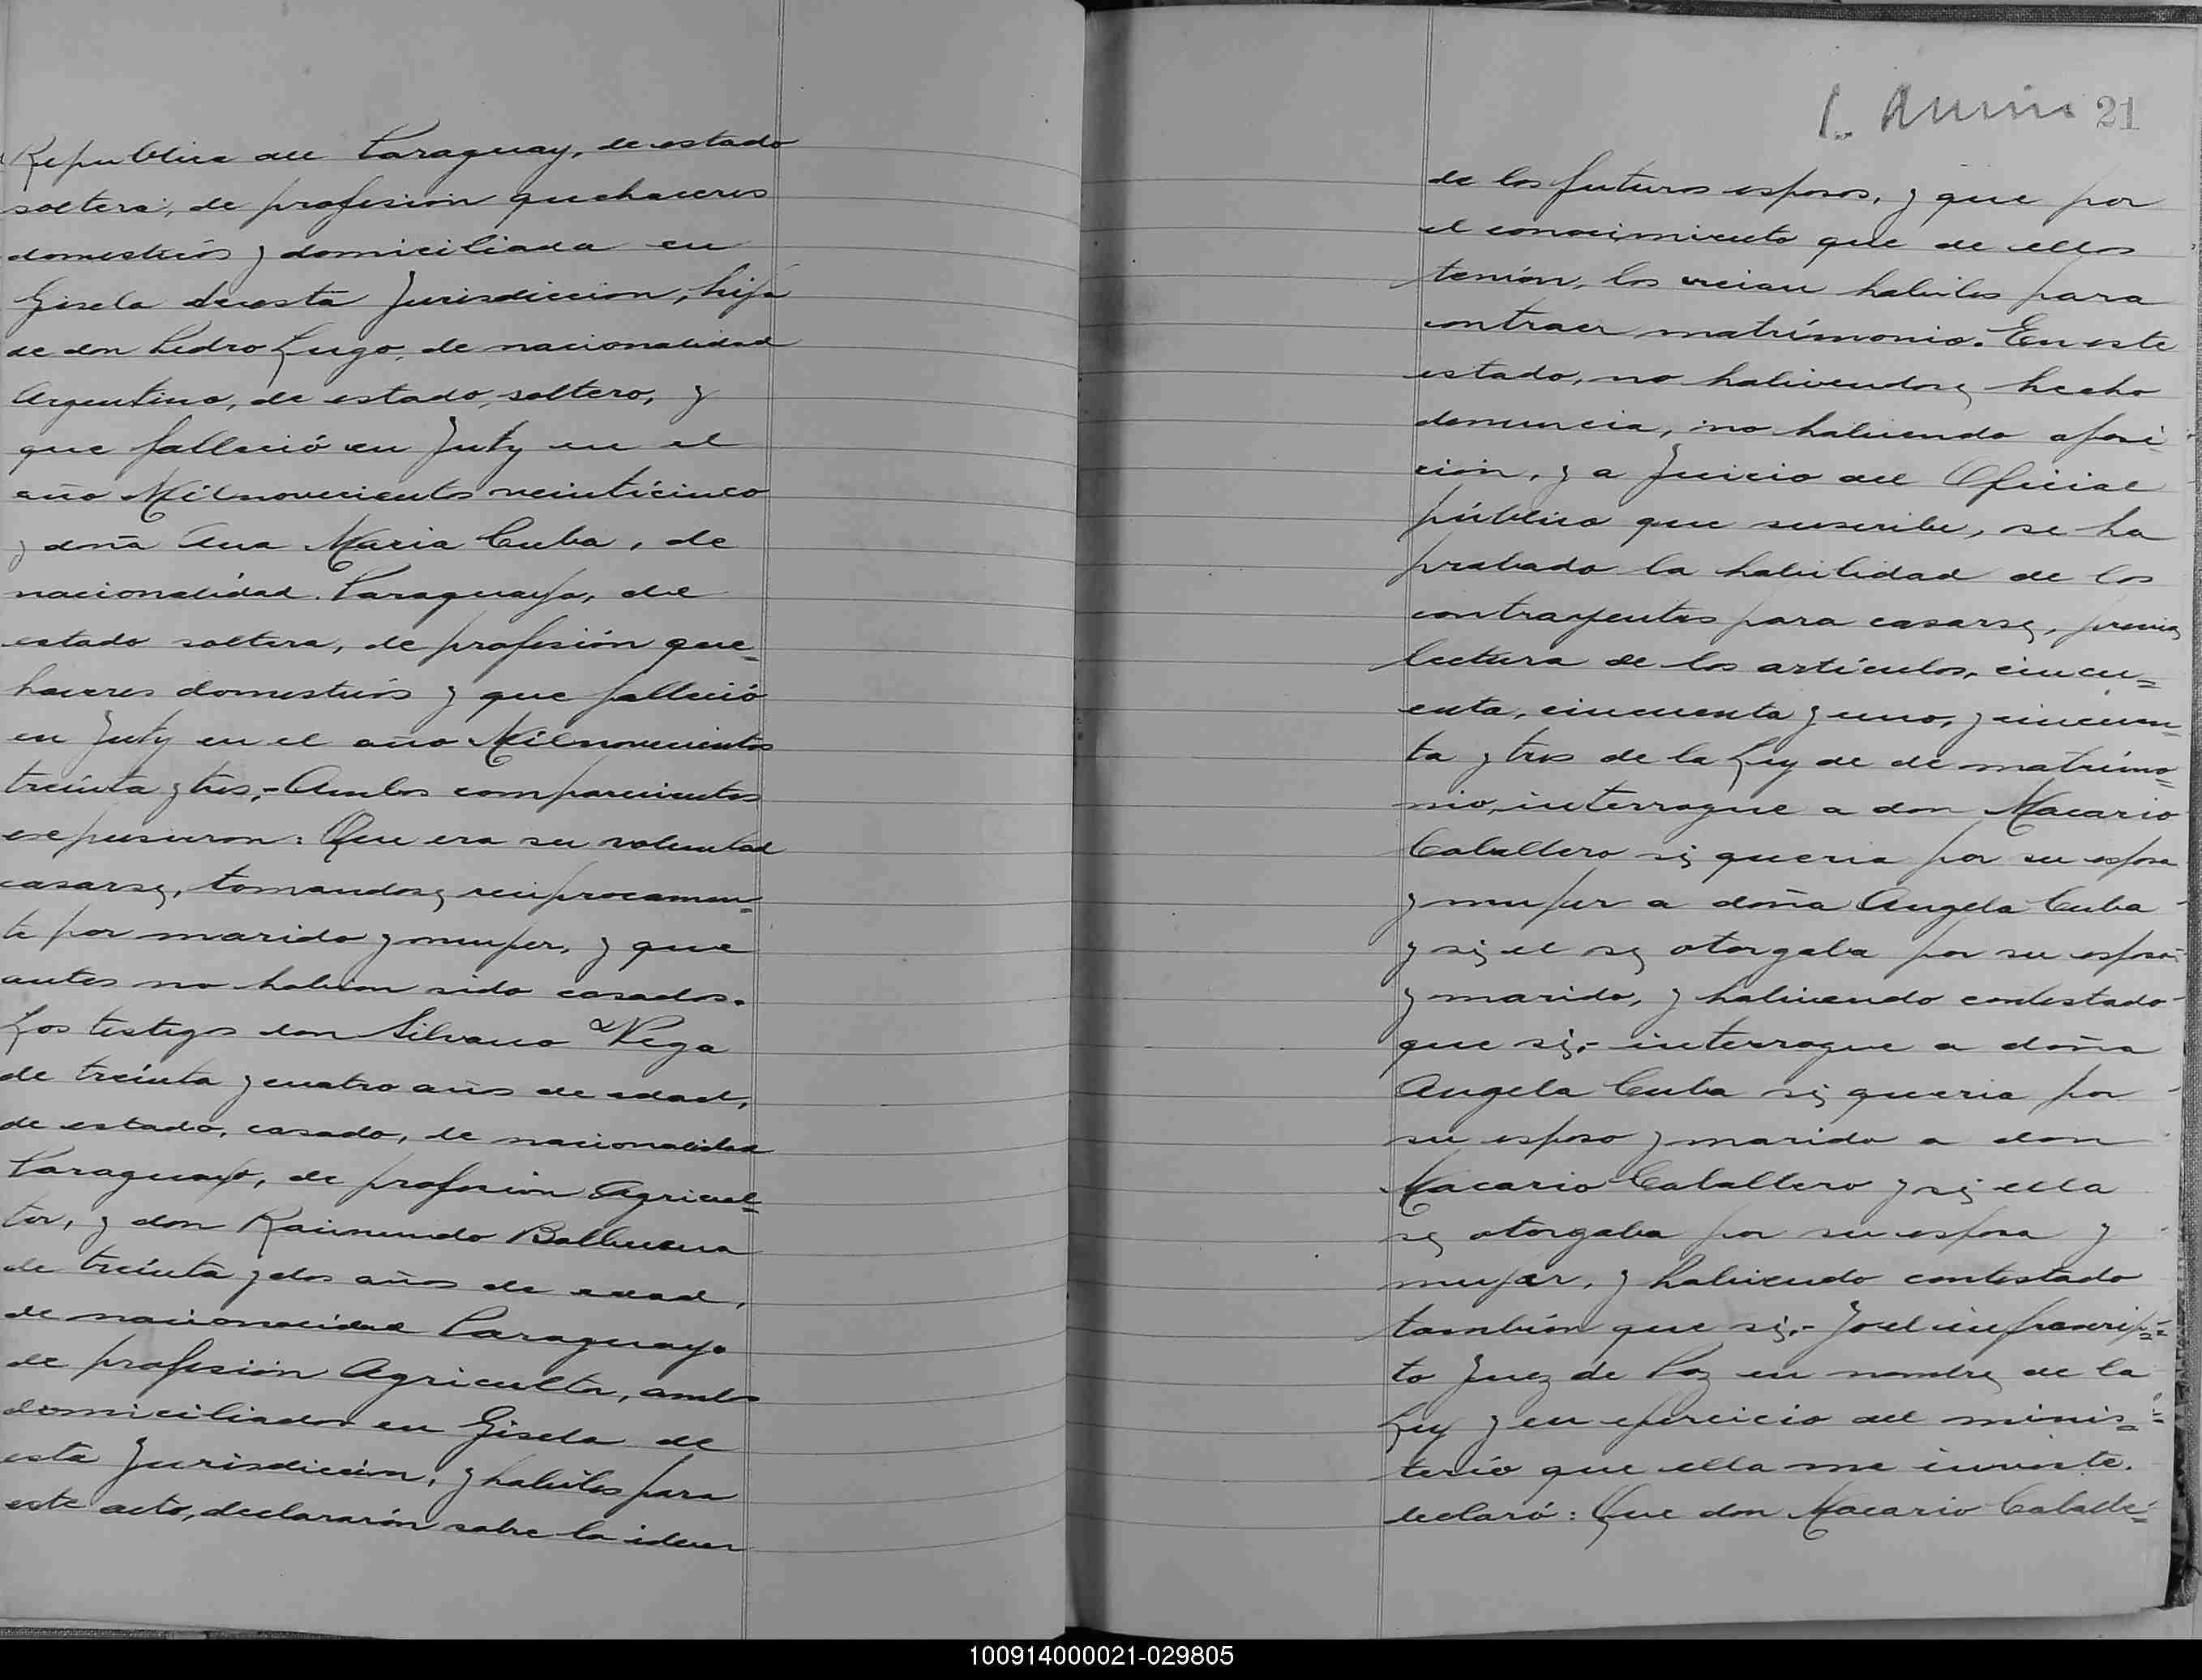 Republica del Paraguay, de estado
soltera, de profesion quehaceres
domesticos y domiciliada en
Gisela de esta Jurisdiccion, hija
de don Pedro Lugo, de nacionalidad
Argentina, de estado, soltero, y
que falleció en Juty en el
año Milnovecientos veinticinco
y doña Ana Maria Cuba, de
nacionalidad. Paraguaya, de
estado soltera, de profesión que=
haceres domesticos y que falleció
en Juty en el año Milnovecientos
treinta y tres,- Ambos comparecientes
expusieron: Que era su voluntad
casarse, tomandose reciprocamen=
te por marido y mujer, y que
antes no habian sido casados.
Los testigos don Silvano Vega
de treinta y cuatro años de edad,
de estado, casado, de nacionalidad
Paraguayo, de profesion Agricul=
tor, y don Raimundo Balbuena
de treinta y dos años de edad,
de nacionalidad Paraguayo
de profesión Agricultor, ambos
domiciliados en Gisela de
esta Jurisdiccion, y habiles para
este acto, declararón sobre la iden
21
de los futuros esposos, y que por
el conocimiento que de ellos
tenian, los creian habiles para
contraer matrimonio. En este
estado, no habiendose hecho
denuncia, no habiendo oposi-
ción, y a Juicio del Oficial
público que suscribe, se ha
probado la habilidad de los
contrayentes para casarse, previa
lectura de los artículos, cincu=
enta, cincuenta y uno, y cincuen=
ta y tres de la Ley de de matrimo=
nio, interrogue a don Macario
Caballero si queria por su esposa
y mujer a doña Angela Cuba
y si el se otorgaba por su esposo
y marido, y habiendo contestado
que si,- interrogue a doña
Angela Cuba si queria por
su esposo y marido a don
Macario Caballero y si ella
se otorgaba por su esposa y
mujer, y habiendo contestado
también que si,- Yo el infrascrip=
to Juez de Paz en nombre de la
Ley y en ejercicio del minis=
terio que ella me inviste.
declaró: Que don Macario Caballe=
100914000021-029805